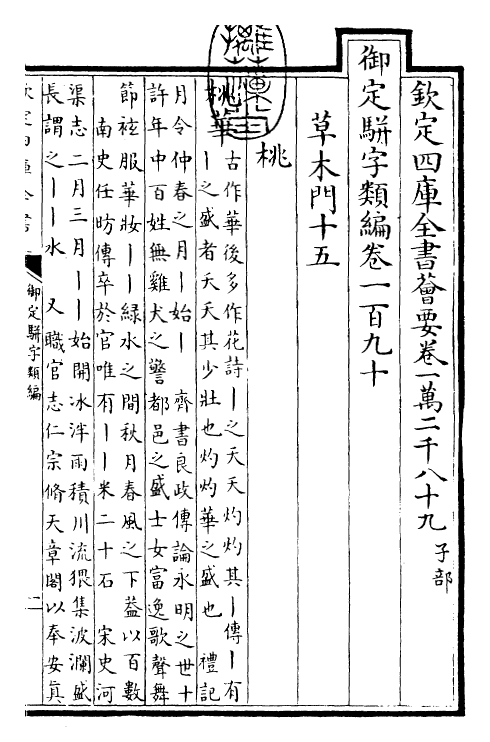 欽定四庫全書薈要卷一萬二千八十九 子部
御定駢字類編卷一百九十
草木門十五
桃
桃華 古作華後多作花詩丨之夭夭灼灼其丨傳丨有
丨之盛者夭夭其少壯也灼灼華之盛也 禮記
月令仲春之月丨始丨 齊書良政傳論永明之世十
許年中百姓無雞犬之警都邑之盛士女富逸歌聲舞
節袨服華妝丨丨綠水之間秋月春風之下葢以百數
南史任昉傳卒於官唯有丨丨米二十石 宋史河
渠志二月三月丨丨始開冰泮雨積川流猥集波瀾盛
長謂之丨丨水 又職官志仁宗脩天章閣以奉安眞
欽定四庫全書
御定駢字類編